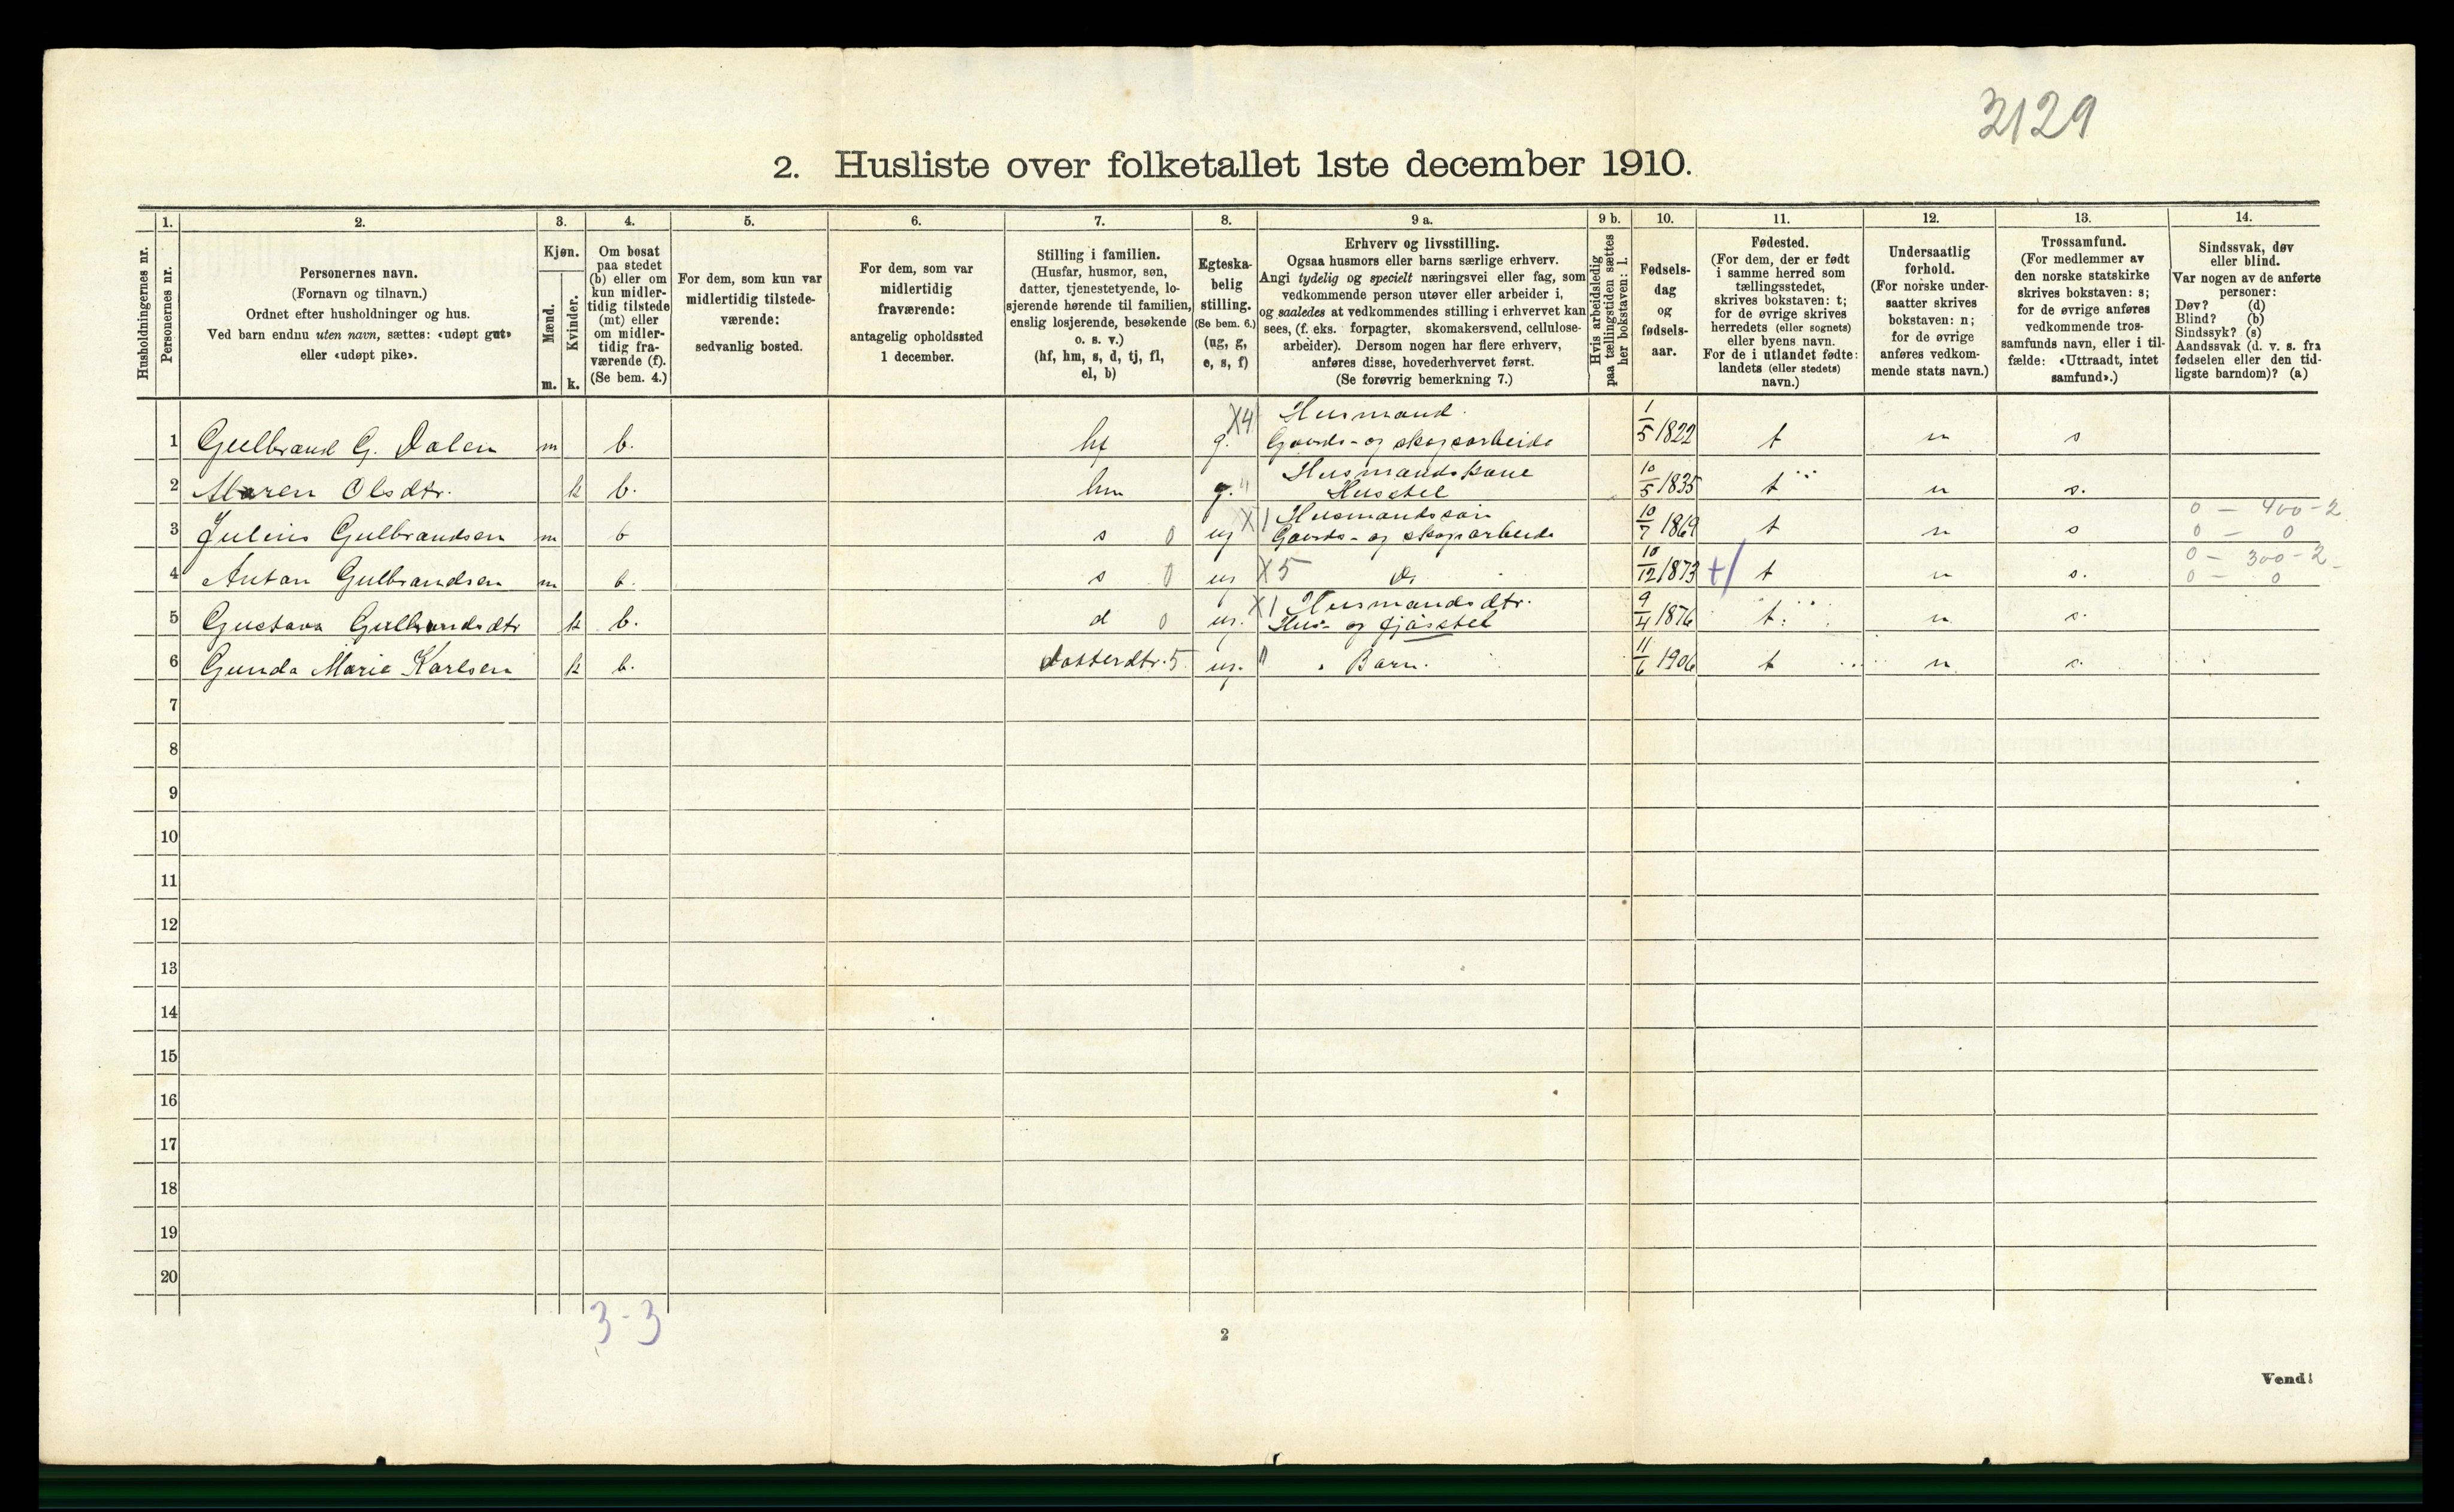 3129
2. Husliste over folketallet 1ste december 1910.
Husholdningernes nr.
1.
Personernes nr.
2.
Personernes navn.
(Fornavn og tilnavn.)
Ordnet efter husholdninger og hus.
Ved barn endnu uten navn, sættes: «udøpt gut»
eller «udøpt pike».
3.
Kjøn.
Mænd.
Kvinder.
m. k.
4.
Om bosat
paa stedet
(b) eller om
kun midler-
tidig tilstede
(mt) eller
om midler-
tidig fra-
værende (f).
(Se bem. 4.)
5.
For dem, som kun var
midlertidig tilstede-
værende:
sedvanlig bosted.
6.
For dem, som var
midlertidig
fraværende:
antagelig opholdssted
1 december.
7.
Stilling i familien.
(Husfar, husmor, søn,
datter, tjenestetyende, lo-
sjerende hørende til familien,
enslig losjerende, besøkende
o. s. v.)
(hf, hm, s, d, tj, fl,
el, b)
8.
Egteska-
belig
stilling.
(Se bem. 6.)
(ug, g,
e, s, f)
9 a.
Erhverv og livsstilling.
Ogsaa husmors eller barns særlige erhverv.
Angi tydelig og specielt næringsvei eller fag, som
vedkommende person utøver eller arbeider i,
og saaledes at vedkommendes stilling i erhvervet kan
sees, (f. eks. forpagter, skomakersvend, cellulose-
arbeider). Dersom nogen har flere erhverv,
anføres disse, hovederhvervet først.
(Se forøvrig bemerkning 7.)
9 b.
Hvis arbeidsledig
paa tællingstiden sættes
her bokstaven: l.
10.
Fødsels-
dag
og
fødsels-
aar.
11.
Fødested.
(For dem, der er født
i samme herred som
tællingsstedet,
skrives bokstaven: t;
for de øvrige skrives
herredets (eller sognets)
eller byens navn.
For de i utlandet fødte:
landets (eller stedets)
navn.)
12.
Undersaatlig
forhold.
(For norske under-
saatter skrives
bokstaven: n;
for de øvrige
anføres vedkom-
mende stats navn.)
13.
Trossamfund.
(For medlemmer av
den norske statskirke
skrives bokstaven: s;
for de øvrige anføres
vedkommende tros-
samfunds navn, eller i til-
fælde: «Uttraadt, intet
samfund».)
14.
Sindssvak, døv
eller blind.
Var nogen av de anførte
personer:
Døv? (d)
Blind? (b)
Sindssyk? (s)
Aandssvak (d. v. s. fra
fødselen eller den tid-
ligste barndom)? (a)
1 Gulbrand G. Dalen m b. hf g. X4 Husmand. Gaards- og skogsarbeide 1/5 1822 t n s
2 Maren Olsdtr. k b. hm g. " Husmandskone Husstel 10/5 1835 t n s.
3 Julius Gulbrandsen m b s 0 ug X1 Husmandssøn Gaards- og skogsarbeide 10/7 1869 t n s 0 — 400 - 2 0 — 0
4 Anton Gulbrandsen m b. s 0 ug X5 Do 10/12 1873 t n s. 0 — 300 - 2 0 — 0
5 Gustava Gulbrandsdtr k b. d 0 ug. X1 Husmandsdtr. Hus- og fjøsstel 9/4 1876 t. n s.
6 Gunda Marie Karlsen k b. datterdtr. 5 ug. " Barn. 11/6 1906 t n s.
7
8
9
10
11
12
13
14
15
16
17
18
19
20
3-3
2
Vend!